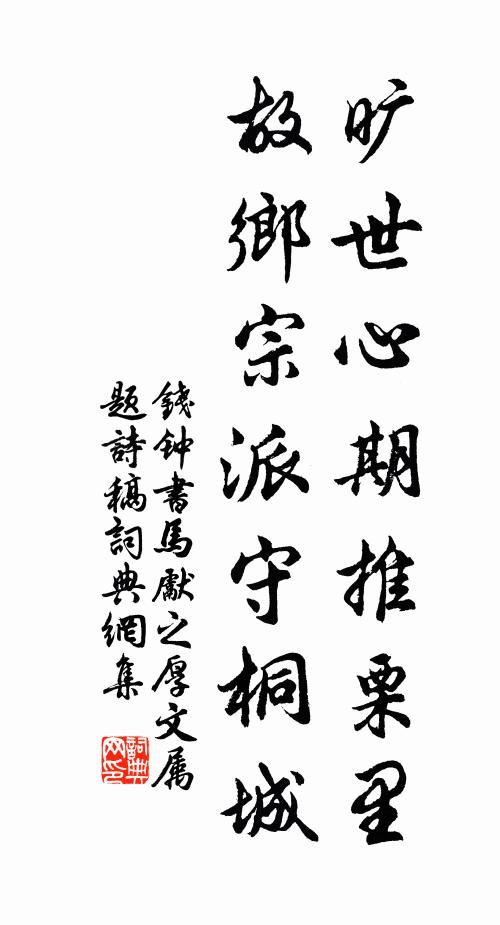 旷世心期推栗里
故鄉宗派守桐城
錢钟書馬獻之厚文属
題詩稿詞典網集
詞典网印